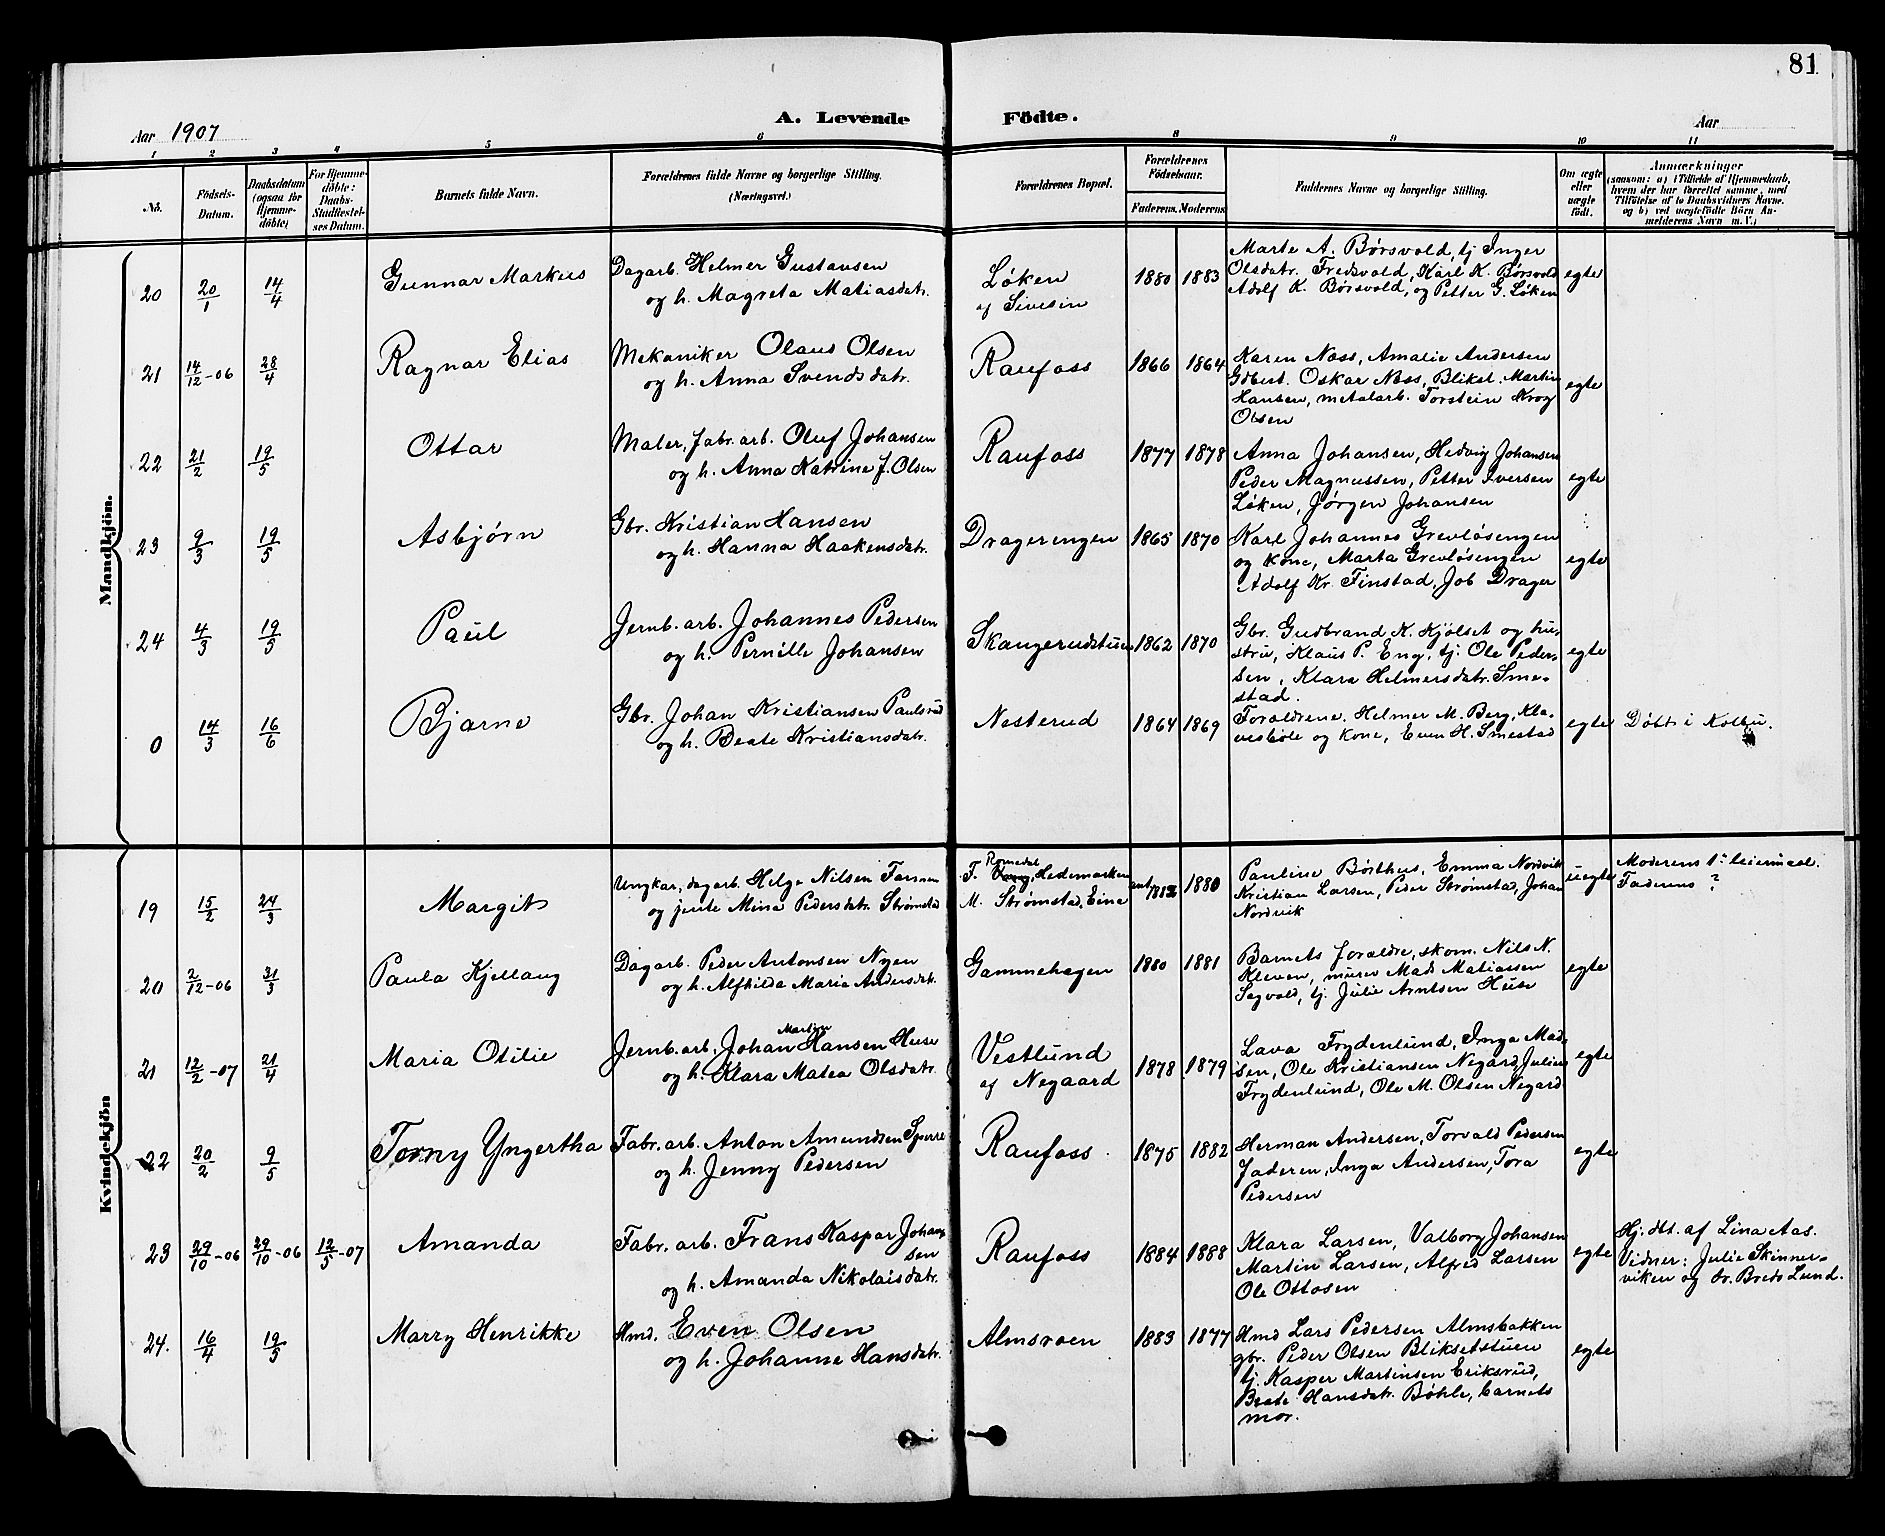 81
Aar 1907
A. Levende Födte.
Aar
1 2 3 4 5 6 8 9 10 11
No.
Födsels-Datum.
Daabsdatum (ogsaa for Hjemmedöbte)
For Hjemmedöbte: Daabs-Stadfestelses Datum.
Barnets fulde Navn.
Forældrenes fulde Navne og borgerlige Stilling. (Næringsvei.)
Forældrenes Bopæl.
Forældrenes Födselsaar.
Faderens. Moderens
Faddernes Navne og borgerlige Stilling.
Om ægte eller uægte födt.
Anmærkninger
(saasom: a) i Tilfælde af Hjemmedaab,
hvem der har forrettet samme, med
Tilföielse af to Daabsvidners Navne,
og b) ved uægtefödte Börn An-
melderens Navn m. V.)
Mandkjön.
20 20/1 14/4 Gunnar Markus
Dagarb. Helmer Gustavsen
og h. Magreta Matiasdatr.
Løken
af Sivesin
1880 1883
Marte A. Børsvold, tj Inger
Olsdatr. Fredsvold, Karl K. Børsvold
Adolf K. Børsvold, og Petter G. Løken
egte
21 14/12-06 28/4 Ragnar Elias
Mekaniker Olaus Olsen
og h. Anna Svendsdatr.
Raufoss
1866 1864
Karen Næss, Amalie Andersen
Gdbest. Oskar Næss, Bliksl. Martin
Hansen, metalarb. Torstein Krog
Olsen
egte
22 21/2 19/5 Ottar
Maler, fabr. arb. Oluf Johansen
og h. Anna Katrine J. Olsen
Raufoss
1877 1878
Anna Johansen, Hedvig Johansen
Peder Magnussen, Petter Iversen
Løken, Jørgen Johansen
egte
23 9/3 19/5 Asbjørn
Gbr. Kristian Hansen
og h. Hanna Haakensdatr.
Dragerengen
1865 1870
Karl Johannes Grevløsengen
og kone, Marta Grevløsengen
Adolf Kr. Finstad, Job Drager
egte
24 4/3 19/5 Paul
Jernb. arb. Johannes Pedersen
og h. Pernille Johansen
Skangerudstuen
1862 1870
Gbr. Gudbrand K. Kjölset og hu-
stru, Klaus P. Eng, tj. Ole Peder-
sen, Klara Helmersdatr. Sme-
stad.
egte
0 14/3 16/6 Bjarne
Gbr. Johan Kristiansen Paulsrud
og h. Beate Kristiansdatr.
Nesterud
1864 1869
Forældrene, Helmer M. Berg, Kla-
vesböle og kone, Even H. Smestad
egte
Døbt i Kolbu.
Kvindekjön
19 15/2 24/3 Margit
Ungkar, dagarb. Helge Nilsen
og jente Mina Pedersdatr. Strømstad
F. Romedal, Hedemarken
M. Strømstad, Eina
1880
Pauline Børthus, Emma Nordvik
Kristian Larsen, Peder Strømstad, Johan
Nordvik
uegte
Moderens 1ste leiermaal.
Faderens ?
20 2/12-06 31/3 Paula Kjellaug
Dagarb. Peder Antonsen Nyen
og h. Alfhilda Maria Andersdatr.
Gammehagen
1880 1881
Barnets forældre, skom. Nils N.
Kleven, murer Mads Matiassen
Sagvold, tj. Julie Arntsen Huse
egte
21 12/2-07 21/4 Maria Otilie
Jernb. arb. Johan Martin Hansen Huse
og h. Klara Matea Olsdatr.
Vestlund
af Negaard
1878 1879
Lava Frydenlund, Inga Mad-
sen, Ole Kristiansen Negard, Julius
Frydenlund, Ole M. Olsen Negard
egte
22 20/2 9/5 Torny Yngertha
Fabr. arb. Anton Amundsen Sperre
og h. Jenny Pedersen
Raufoss
1875 1882
Herman Andersen, Torvald Pedersen
Jaderen, Inga Andersen, Tora
Pedersen
egte
23 29/10-06 29/10-06 12/5-07 Amanda
Fabr. arb. Frans Kaspar Johan-
sen
og h. Amanda Nikolaisdatr.
Raufoss
1884 1888
Klara Larsen, Valborg Johansen
Martin Larsen, Alfred Larsen
Ole Ottosen
egte
Hj. dbt. af Lina Aas.
Vidner: Julie Skinner-
viken og br. Bredo Lund.
24. 16/4 19/5 Marry Henrikke
Hmd. Even Olsen
og h. Johanne Hansdatr.
Almsroen
1883 1877
Hmd Lars Pedersen Almsbakken
gbr. Peder Olsen Bliksetstuen
tj. Kasper Martinsen Eriksrud,
Beate Hansdatr. Bøhle, barnets
mor.
egte